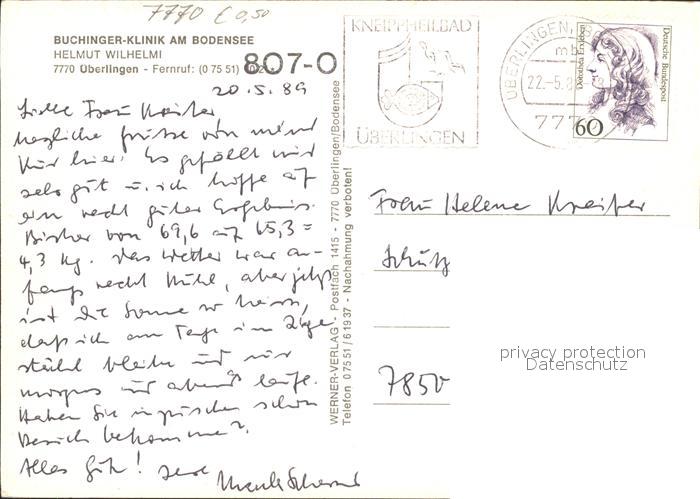 7770 € 0,50
BUCHINGER-KLINIK AM BODENSEE
HELMUT WILHELMI
7770 Überlingen - Fernruf: (0 75 51)
807-0
20.5.89
Liebe Frau Kreiser,
herzliche Grüße von meiner
Kur hier. Es gefällt mir
sehr gut u. ich hoffe auf
ein recht gutes Ergebnis.
Bisher von 69,6 auf 65,3 =
4,3 kg. Das Wetter war an-
fangs recht kühl, aber jetzt
ist die Sonne so heiss,
daß ich am Tage im Liege
stuhl bleibe und nur
morgens und abends laufe.
Haben Sie inzwischen schon
Besuch bekommen?
Alles Gute! Ihre
WERNER-VERLAG - Postfach 1415 - 7770 Überlingen/Bodensee
Telefon 0 75 51/6 19 37 - Nachahmung verboten!
KNEIPPHEILBAD
ÜBERLINGEN
ÜBERLINGEN, B
mb
22.-5.8
777
Dorothea Erxleben
Deutsche Bundespost
60
Frau Helene Kreiser
Schütz
7850
privacy protection
Datenschutz